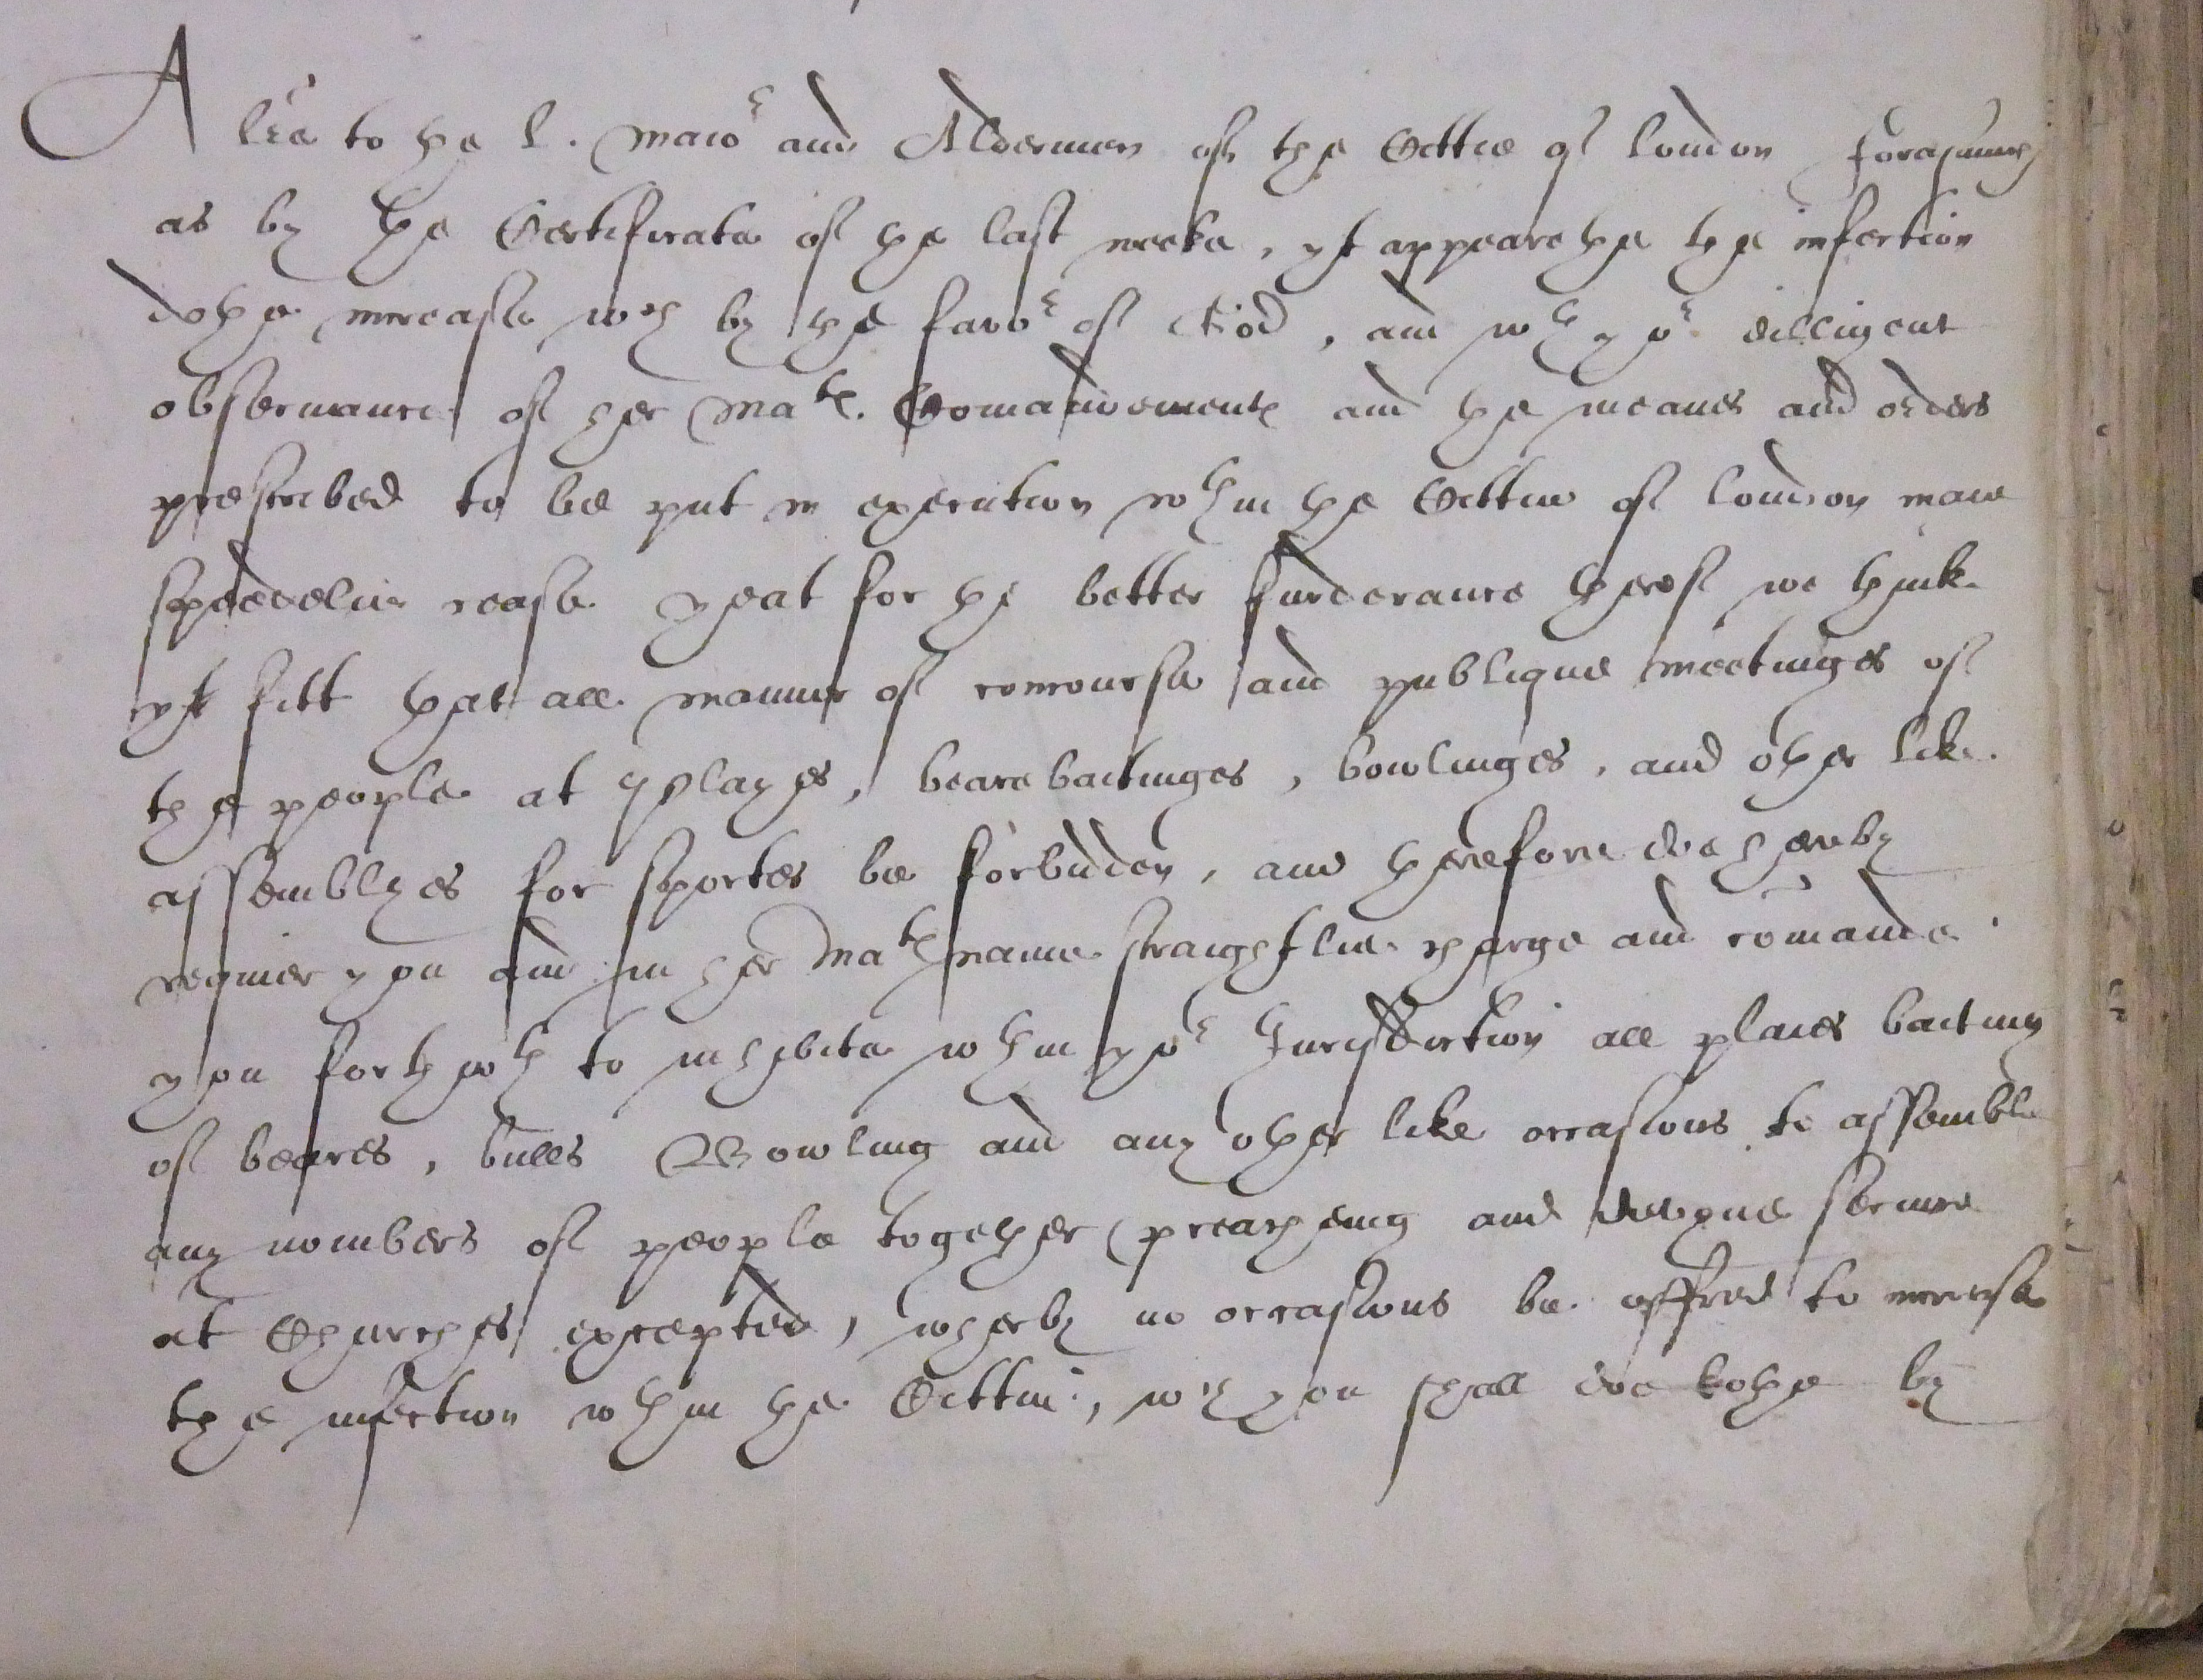 A lre to the L. Maior and Aldermen of the Cittie of London Forasmuch
as by the Certificate of the last weeke, yt appearethe the infection
dothe increase wch by the favor of God, and wth yor dilligent
observaunce of her Mats. Comandements and the meanes and orders
prescribed to be put in execution wthin the Cittie of London maie
speedelie cease yeat for the better furderance therof we think
yt fitt that all manner of concourse and publique meetinges of
the people at Playes, bearebaitinges, bowlinges, and other like
assemblyes for sportes be forbidden, and therefore doe hereby
requier you and in her Mats name straightlie charge and comande
you forthwth to inhibite wthin yor Jurisdiction all plaies baiting
of beares, bulls Bowling and any other like occasions to assemble
any nombers of people together (preacheing and devyne service
at Churches excepted) wherby no occasions be offred to increase
the infection wthin the Cittie, wch you shall doe bothe by